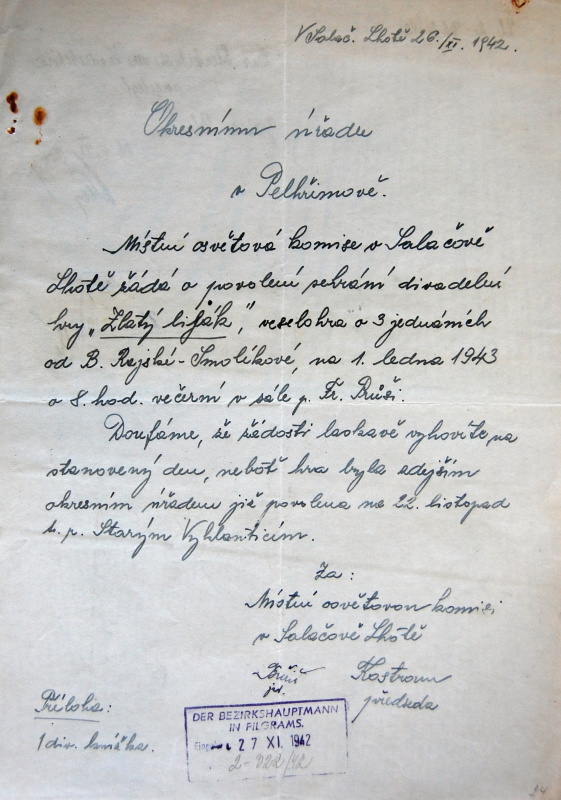 V Salač. Lhotě 26./XI. 1942.
Okresnímu úřadu
v Pelhřimově.
Místní osvětová komise v Salačově
Lhotě žádá o povolení sehrání divadelní
hry „Zlatý lišák", veselohra o 3 jednáních
od B. Rajské-Smolíkové, na 1. ledna 1943
o 8. hod. večerní v sále p. Fr. Bruši.
Doufáme, že žádosti laskavě vyhovíte, na
stanovený den, neboť hra byla zdejším
okresním úřadem již povolena na 22. listopad
t. r. Starým Vyklanticím.
Za:
Místní osvětovou komisi
v Salačově Lhotě
jed. předseda
Příloha:
1 div. knížka.
DER BEZIRKSHAUPTMANN
IN PILGRAMS.
27 XI. 1942
24